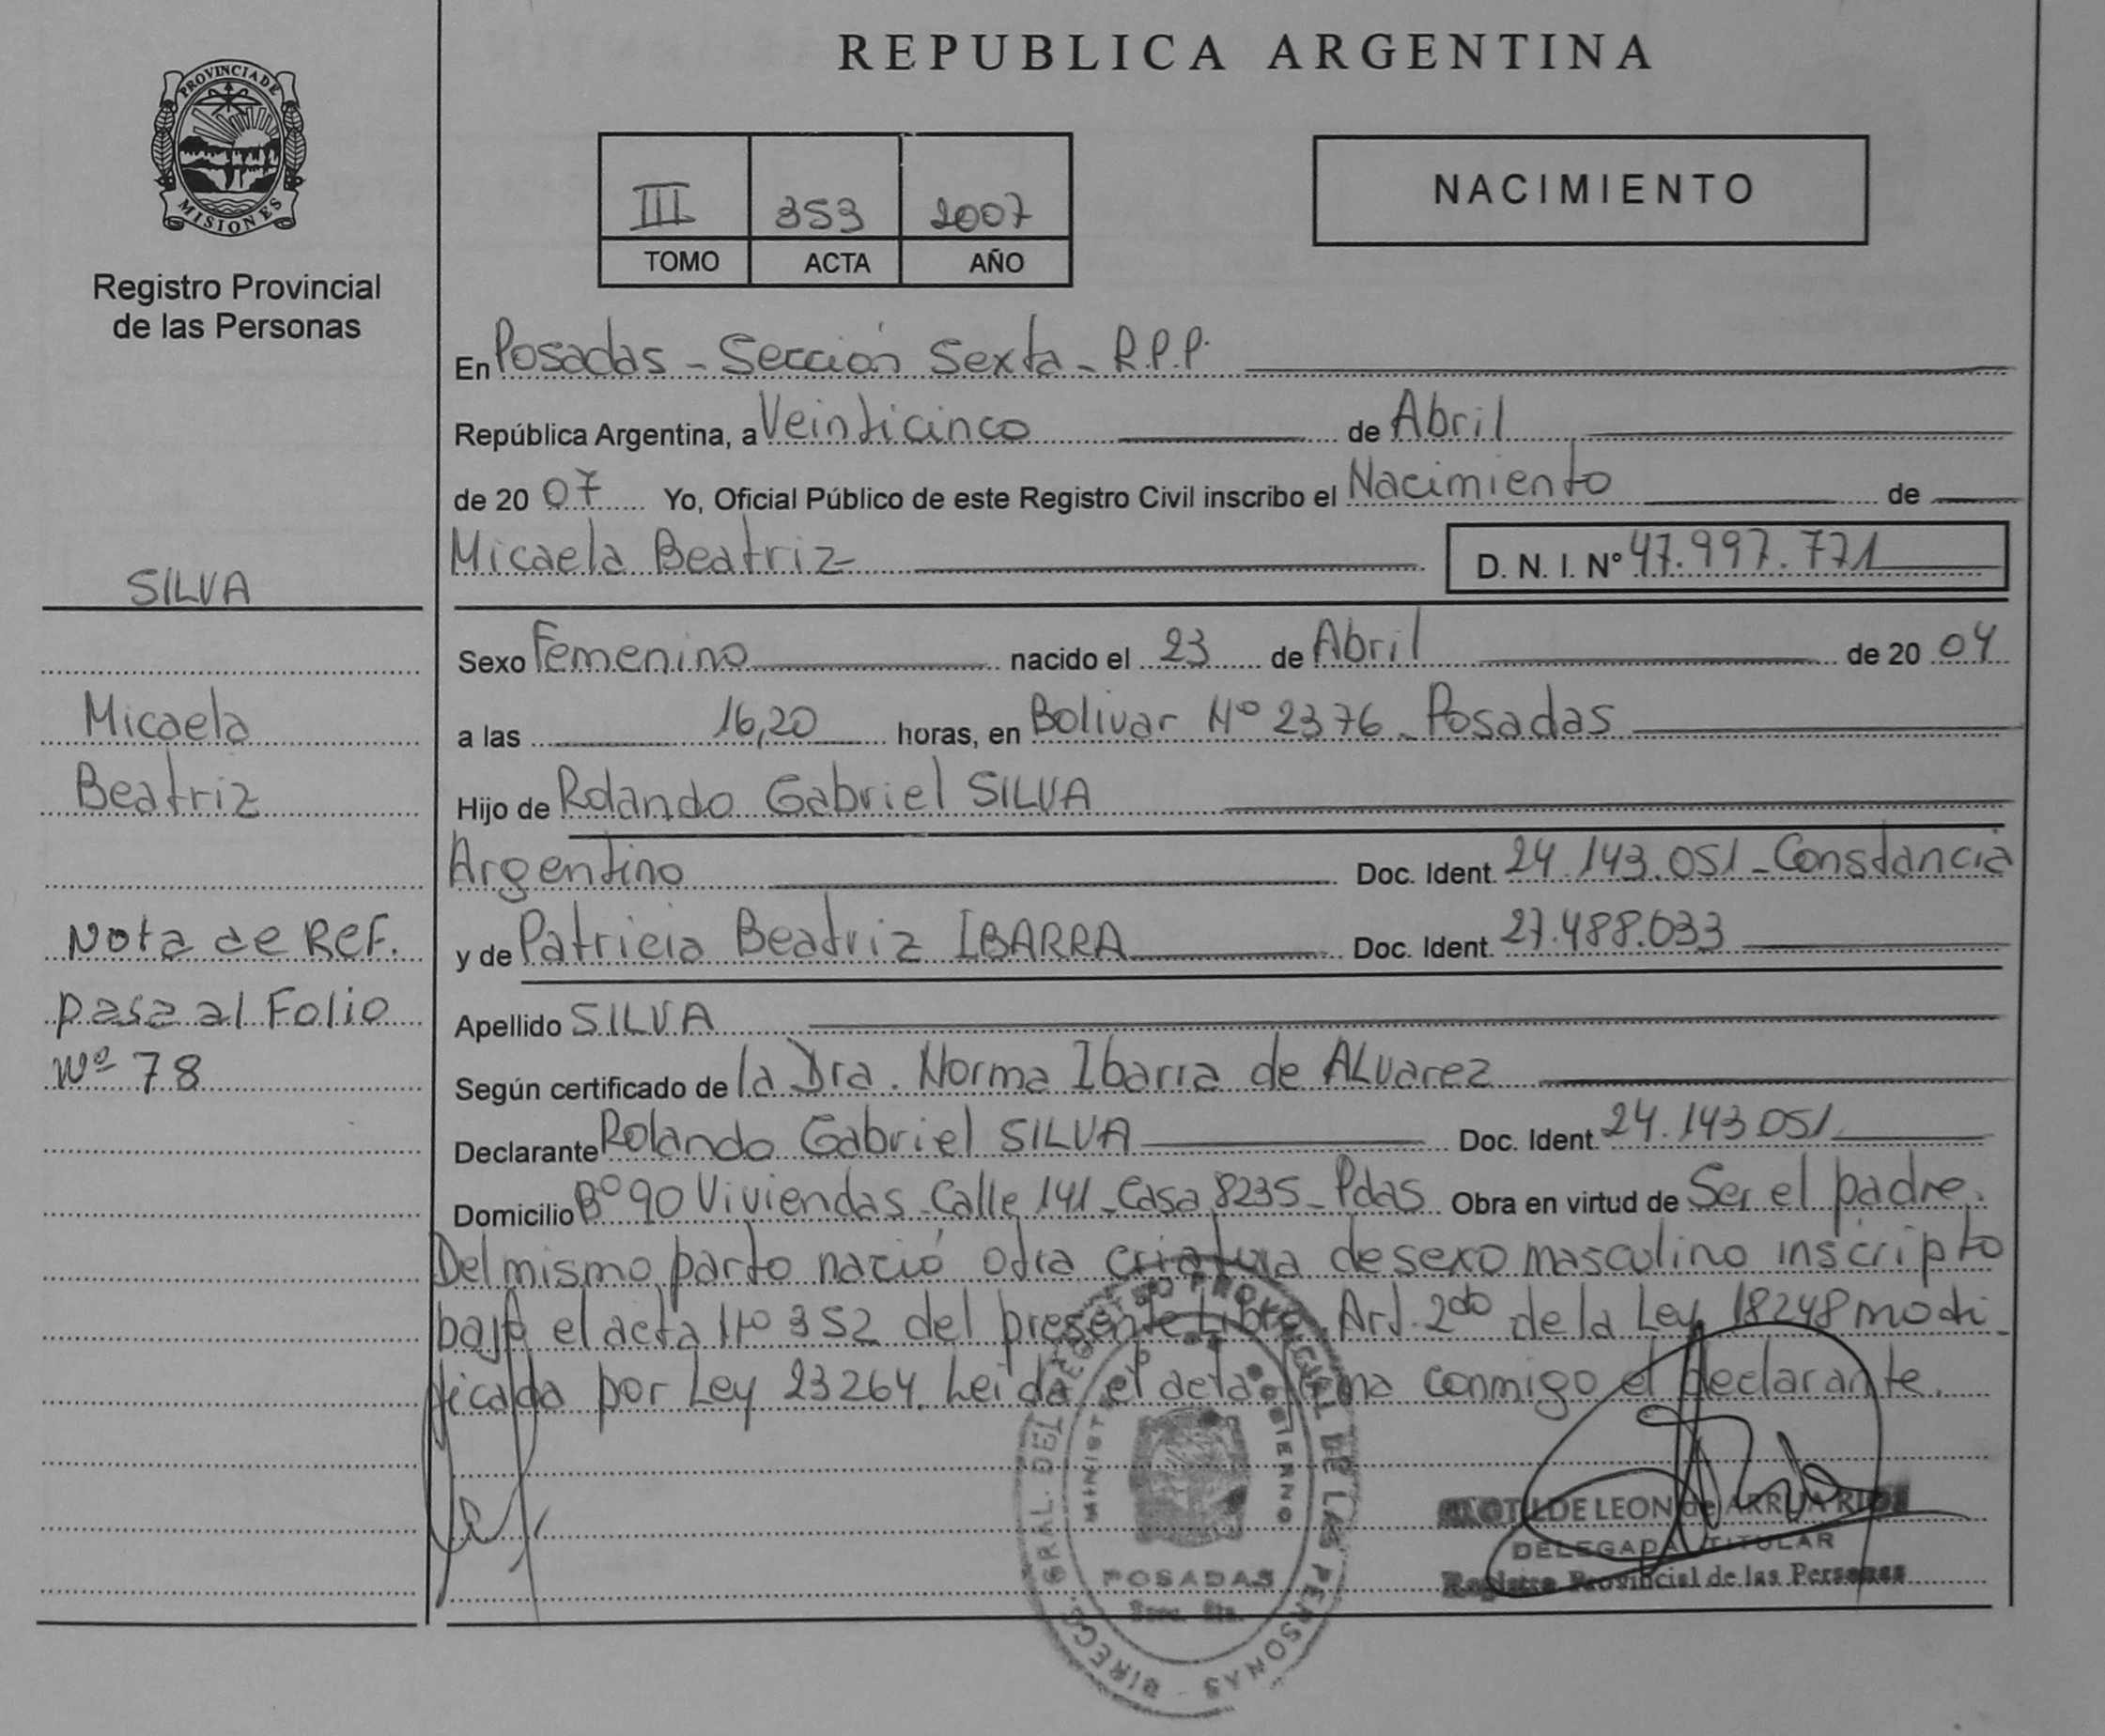 REPUBLICA ARGENTINA
PROVINCIA DE
MISIONES
Registro Provincial
de las Personas
III 353 2007
TOMO ACTA AÑO
NACIMIENTO
En Posadas - Sección Sexta - R.P.P.
República Argentina, a Veinticinco de Abril
de 20 07 Yo, Oficial Público de este Registro Civil inscribo el Nacimiento de
Micaela Beatriz D. N. I. Nº 47.997.771
SILVA
Sexo Femenino nacido el 23 de Abril de 20 04
Micaela
a las 16,20 horas, en Bolivar Nº 2376 - Posadas
Beatriz
Hijo de Rolando Gabriel SILVA
Argentino Doc. Ident. 24.143.051 - Constancia
Nota de Ref.
y de Patricia Beatriz IBARRA Doc. Ident. 27.488.033
pasa al Folio
Apellido SILVA
Nº 78
Según certificado de la Dra. Norma Ibarra de ALvarez
Declarante Rolando Gabriel SILVA Doc. Ident. 24.143.051
Domicilio Bº 90 Viviendas - Calle 141 - Casa 8235 - Pdas Obra en virtud de Ser el padre.
Del mismo parto nació otra criatura de sexo masculino inscripto
bajo el acta Nº 352 del presente Libro. Art. 2do de la Ley 18248 modi-
ficada por Ley 23264. Leida el acta firma conmigo el declarante.
DIRECC. GRAL. DEL REGISTRO PROVINCIAL DE LAS PERSONAS
MINISTERIO DE GOBIERNO
POSADAS
Secc. 6ta.
CLOTILDE LEON de ARRUA
DELEGADA TITULAR
Registro Provincial de las Personas